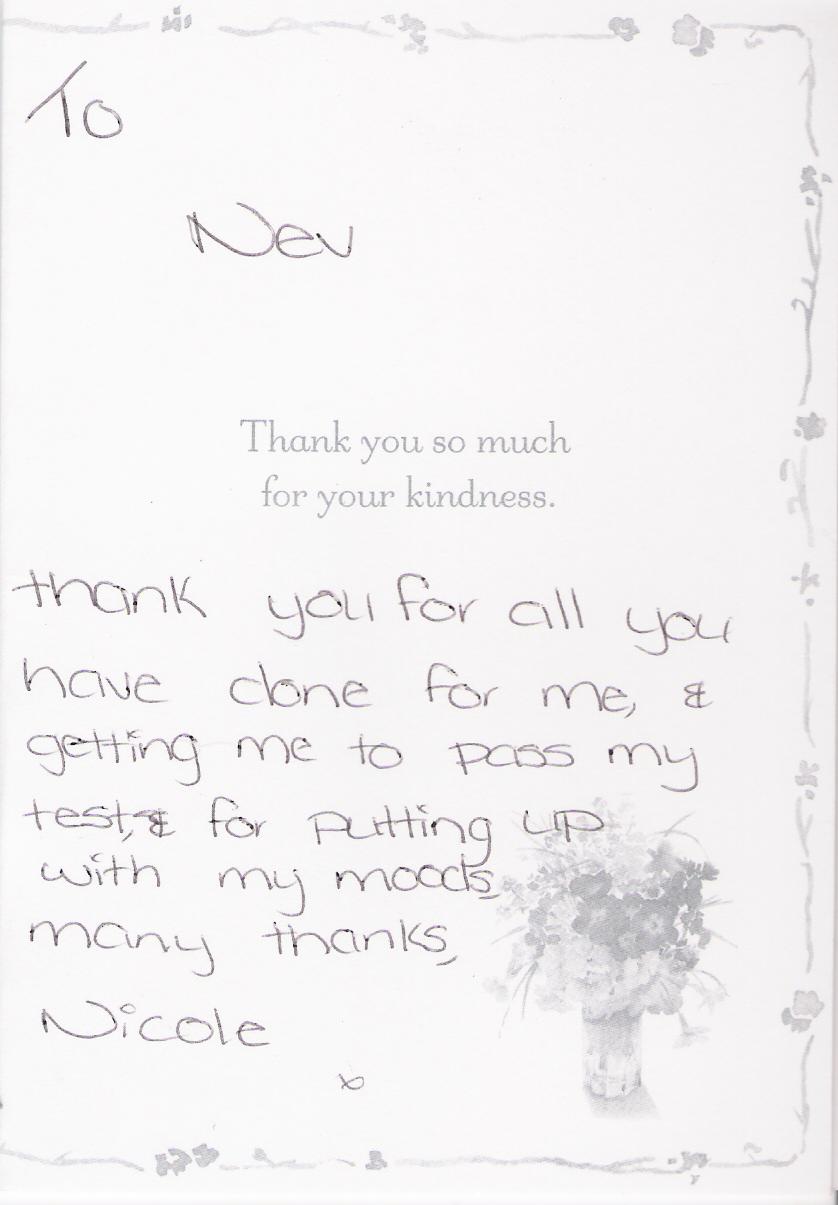 To
Nev
Thank you so much
for your kindness.
thank you for all you
have done for me, &
getting me to pass my
test, & for putting up
with my moods,
many thanks,
Nicole
x